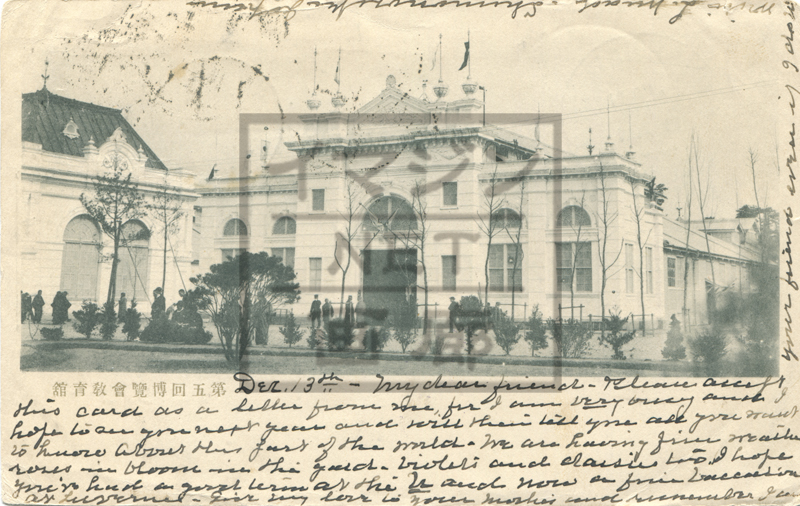 第五回博覽會教育舘
Dec. 13th - My dear friend - Please accept
this card as a letter from me, for I am very busy and
hope to see you next year and will then tell you all you want
to know about this part of the world - We are having fine weather
roses in bloom in the yard - Violets and daisies too, I hope
you've had a good term at the U and now a fine vacation
at - Give my love to your mother and remember I am
your friend even if I do
イマジン
NET
画廊